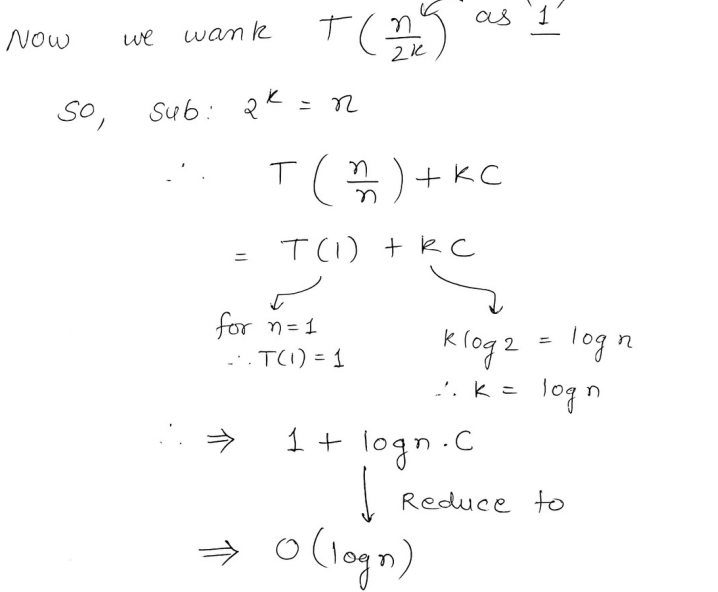 Now we wank T(n/2k) as '1'
So, sub: 2^k = n
∴ T(n/n) + KC
= T(1) + KC
for n=1
∴ T(1) = 1
k log 2 = log n
∴ K = log n
∴ ⇒ 1 + log n . C
Reduce to
⇒ O(log n)